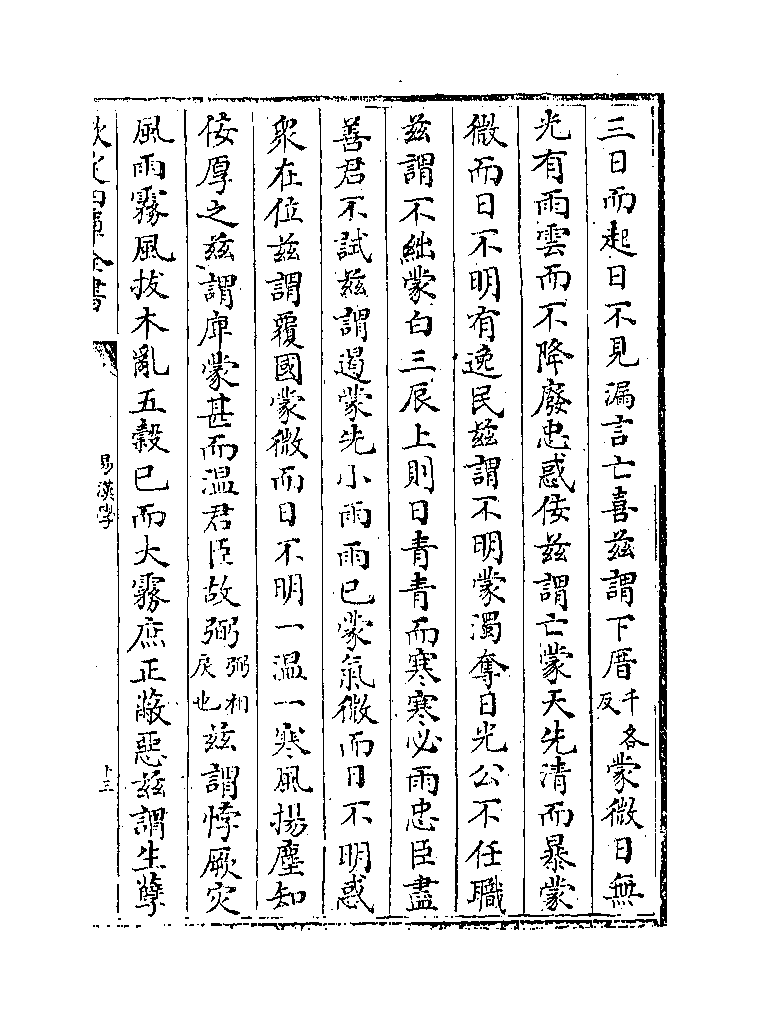 三日而起日不見漏言亡喜茲謂下厝千各反蒙微日無
光有雨雲而不降廢忠惑佞茲謂亡蒙天先清而暴蒙
微而日不明有逸民茲謂不明蒙濁奪日光公不任職
茲謂不絀蒙白三辰上則日青青而寒寒必雨忠臣盡
善君不試茲謂遏蒙先小雨雨已蒙氣微而日不明惑
衆在位茲謂覆國蒙微而日不明一溫一寒風揚塵知
佞厚之茲謂庳蒙甚而溫君臣故弼弼相戾也茲謂悖厥災
風雨霧風拔木亂五穀已而大霧庶正蔽惡茲謂生孽
欽定四庫全書
易漢學
十三